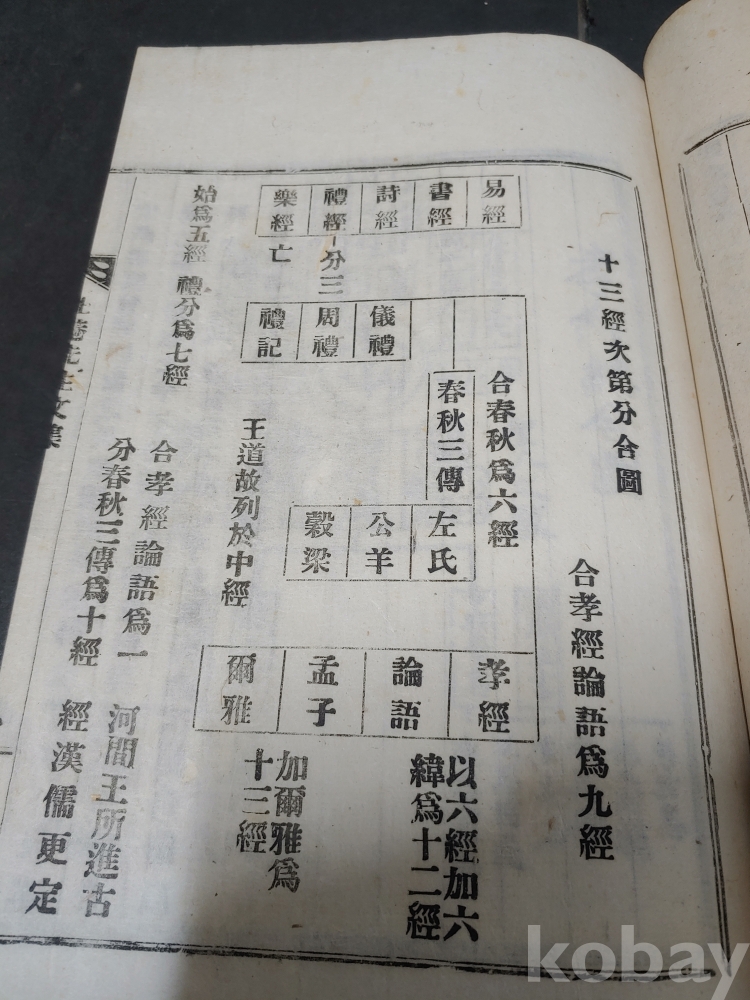 十三經次第分合圖
合孝經論語爲九經
易經
書經
詩經
禮經
分三
樂經
亡
始爲五經
禮分爲七經
儀禮
周禮
禮記
合春秋爲六經
春秋三傳
左氏
公羊
穀梁
王道故列於中經
合孝經論語爲一
分春秋三傳爲十經
孝經
論語
孟子
爾雅
以六經加六
緯爲十二經
加爾雅爲
十三經
河間王所進古
經漢儒更定
菴先生文集
kobay